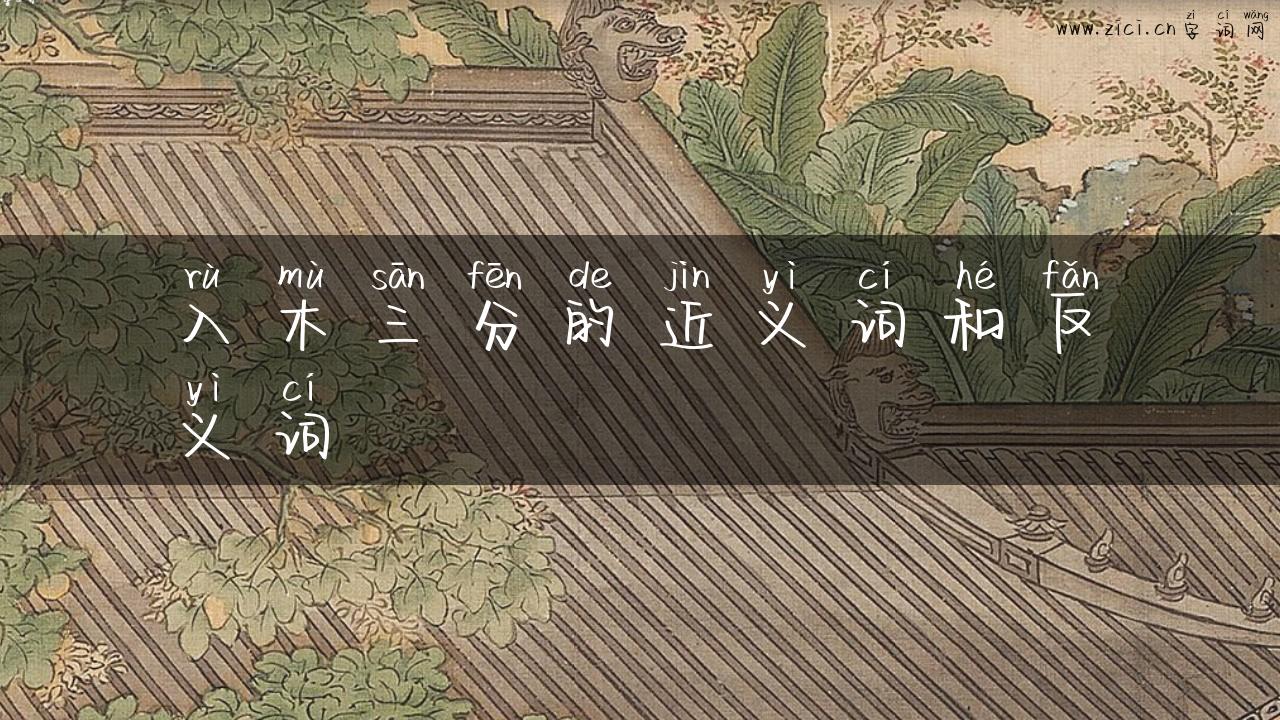 zì cí wǎng
www.zici.cn 字词网
rù mù sān fēn de jìn yì cí hé fǎn
入木三分的近义词和反
yì cí
义词